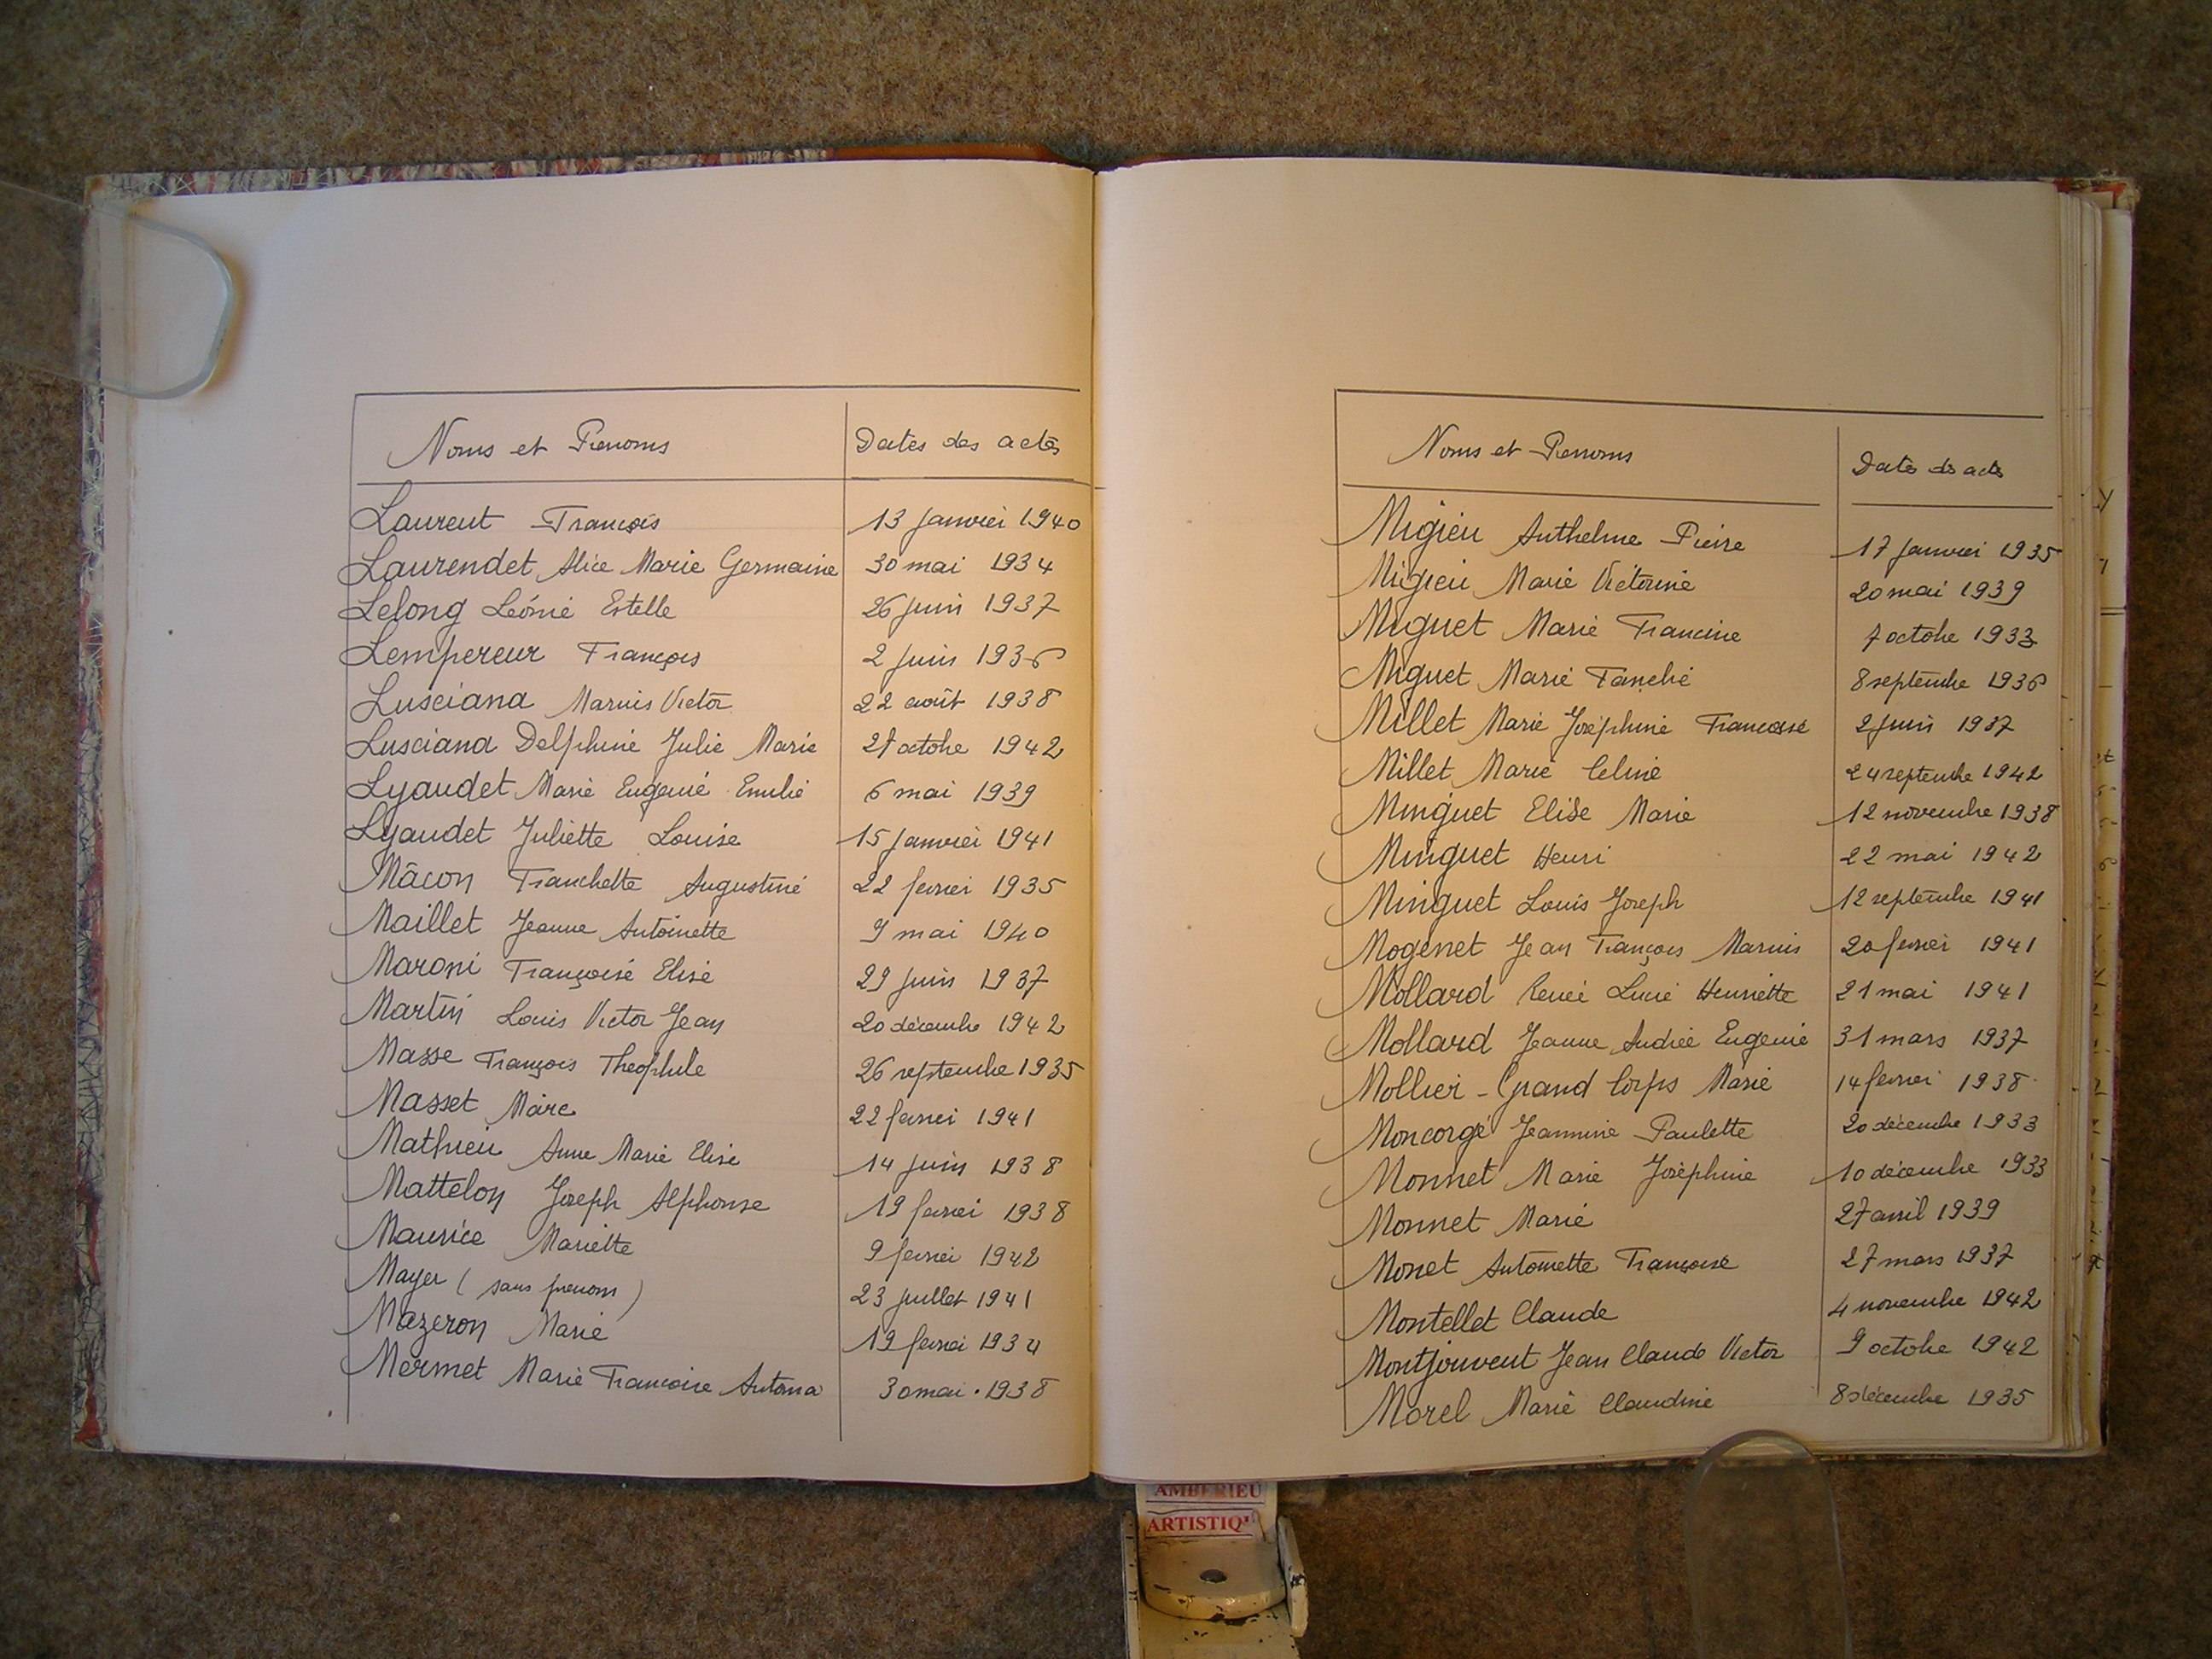 Noms et Prenoms Dates des actes
Laurent François 13 janvier 1940
Laurendet Alice Marie Germaine 30 mai 1934
Lelong Léonie Estelle 26 juin 1937
Lempereur François 2 juin 1936
Lusciana Marius Victor 22 août 1938
Lusciana Delphine Julie Marie 27 octobre 1942
Lyaudet Marie Eugenie Emilie 6 mai 1939
Lyaudet Juliette Louise 15 janvier 1941
Mâcon Franchette Augustine 22 fevrier 1935
Maillet Jeanne Antoinette 9 mai 1940
Maroni Françoise Elise 29 juin 1937
Martin Louis Victor Jean 20 décembre 1942
Masse François Theophile 26 septembre 1935
Masset Marc 22 fevrier 1941
Mathieu Anne Marie Elise 14 juin 1938
Mattelon Joseph Alphonse 19 fevrier 1938
Maurice Mariette 9 fevrier 1942
Mayer (sans prenom) 23 juillet 1941
Mazeron Marie 19 fevrier 1934
Mermet Marie Francoise Antonia 30 mai . 1938
Noms et Prenoms Dates des actes
Migieu Anthelme Pierre 17 janvier 1935
Migieu Marie Victorine 20 mai 1939
Miguet Marie Francine 7 octobre 1933
Miguet Marie 8 septembre 1936
Millet Marie Joséphine Francoise 2 juin 1937
Millet Marie Celine 24 septembre 1942
Minguet Elise Marie 12 novembre 1938
Minguet Henri 22 mai 1942
Minguet Louis Joseph 12 septembre 1941
Mogenet Jean François Marius 20 fevrier 1941
Mollard Renée Lucie Henriette 21 mai 1941
Mollard Jeanne Andrée Eugenie 31 mars 1937
Mollier - Grand Corps Marie 14 fevrier 1938
Moncorgé Jeannine Paulette 20 décembre 1933
Monnet Marie Joséphine 10 décembre 1933
Monnet Marie 27 avril 1939
Monet Antoinette Françoise 27 mars 1937
Montellet Claude 4 novembre 1942
Montjouvent Jean Claude Victor 9 octobre 1942
Morel Marie Claudine 8 décembre 1935
AMBERIEU
ARTISTIQ